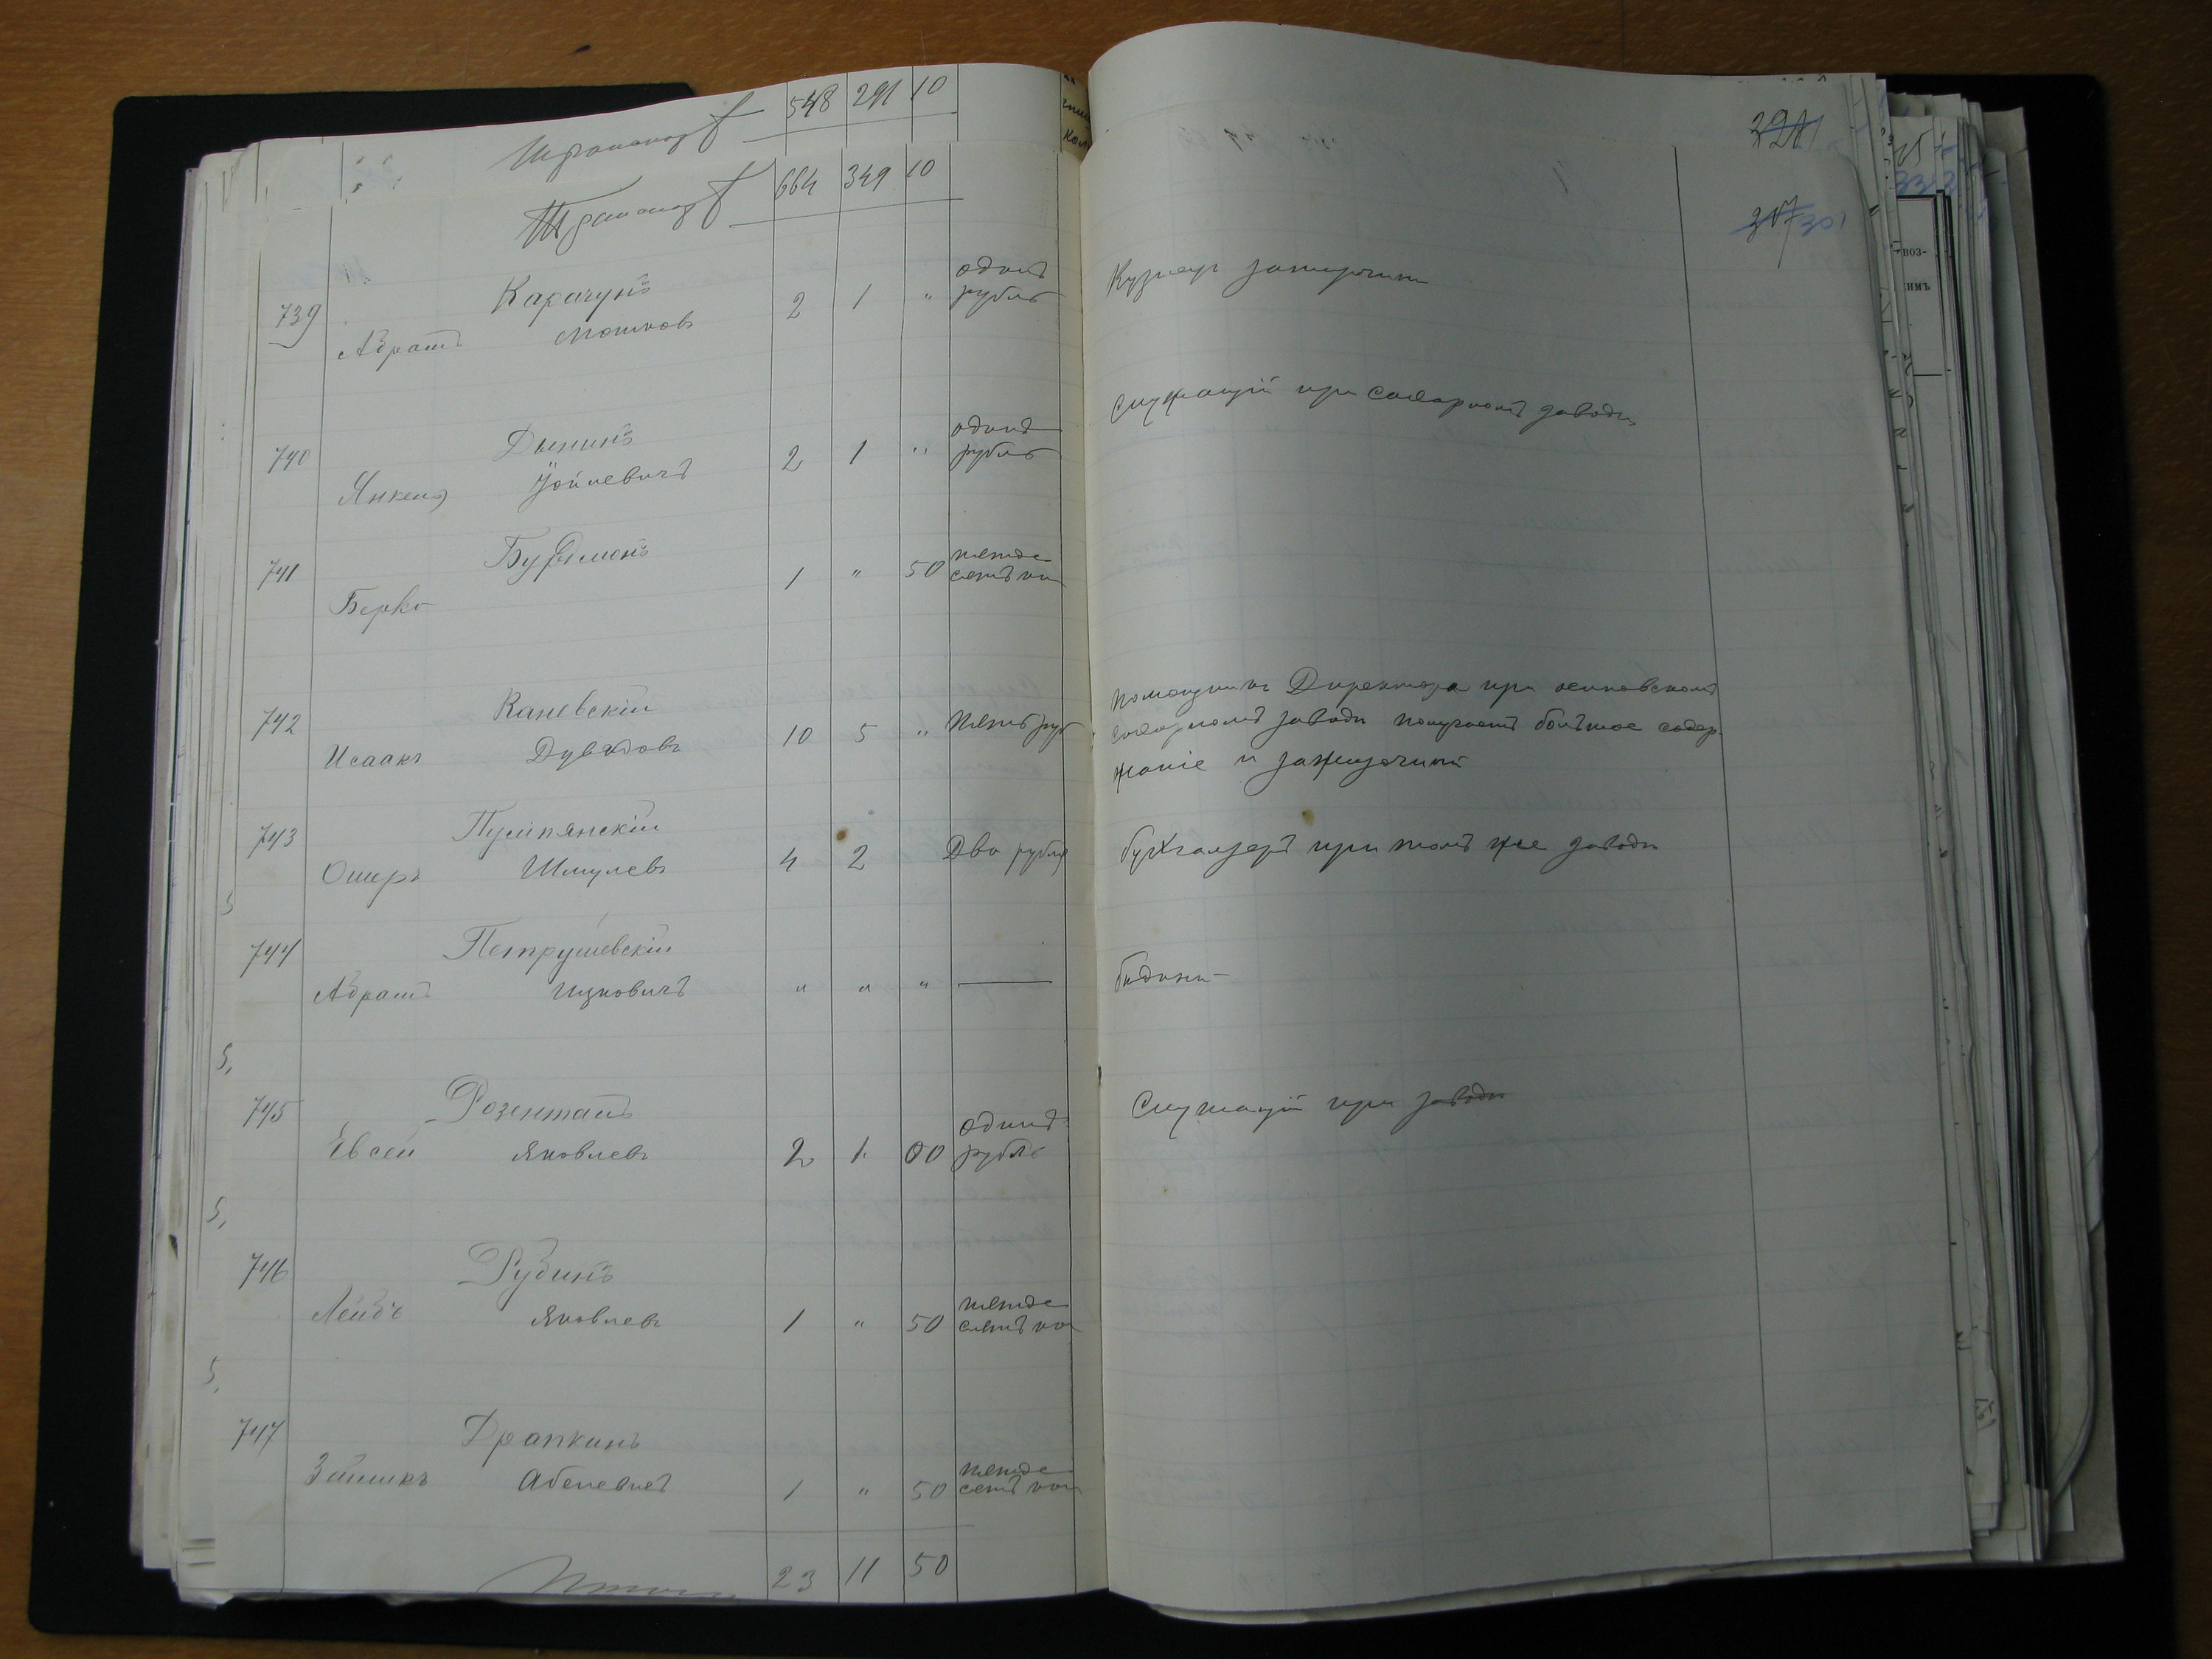 Транспортъ 548 291 10
Транспортъ 664 349 10
291
307 301
739 Карачунъ 2 1 " одинъ рубль Кузнецъ зажиточный
Абрамъ Мошковъ
740 Дынинъ 2 1 " одинъ рубль Служащій при сахарномъ заводѣ
Янкель Хоймевичъ
741 Бурдмонъ 1 " 50 пятьдесятъ коп
Берко
742 Каневскій 10 5 " Пять руб помощникъ Директора при
Исаакъ Дувидовъ сахарномъ заводѣ получаетъ большое содер-
жаніе и зажиточный
743 Пумпянскій 4 2 Два рубля бухгалтеръ при томъ же заводѣ
Ошеръ Шмулевъ
744 Петрушевскій " " " — бѣдный
Абрамъ Ицковичъ
745 Розенталь 2 1 00 одинъ рубль Служащій при заводѣ
Евсей Яковлевъ
746 Рубинъ 1 " 50 пятьдесятъ коп
Лейбъ Яковлевъ
747 Драпкинъ 1 " 50 пятьдесятъ коп
Абелевичъ
Итого 23 11 50
ВОЗ-
ИМЪ